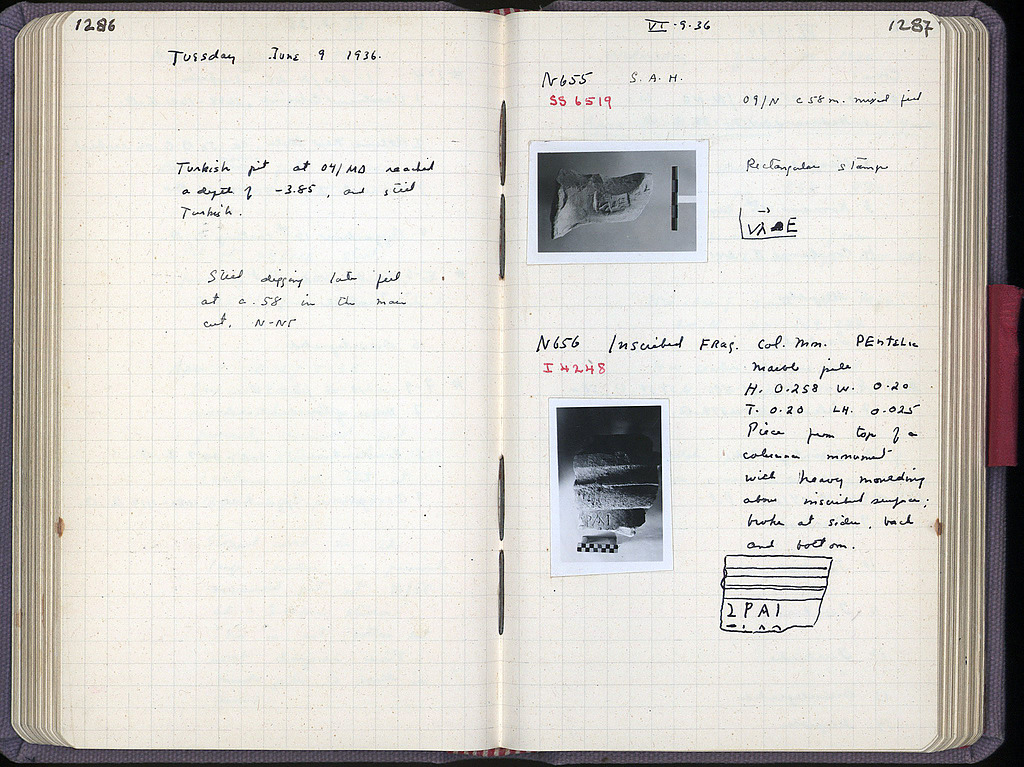 1286
Tuesday June 9 1936.
Turkish pit at 04/ΜΔ reached
a depth of -3.85, and still
Turkish.
Still digging late fill
at c. 58 in the main
cut. N-NE
VI-9-36
1287
N655 S.A.H.
SS 6519
09/N c 58 m. mixed fill
Rectangular stamp
N656 Inscribed Frag. Col. Mm. Pentelic
I 4248
marble pile
H. 0.258 W. 0.20
T. 0.20 LH. 0.025
Piece from top of a
column monument
with heavy moulding
above inscribed surface;
broken at sides, back
and bottom.
ΡΑΙ